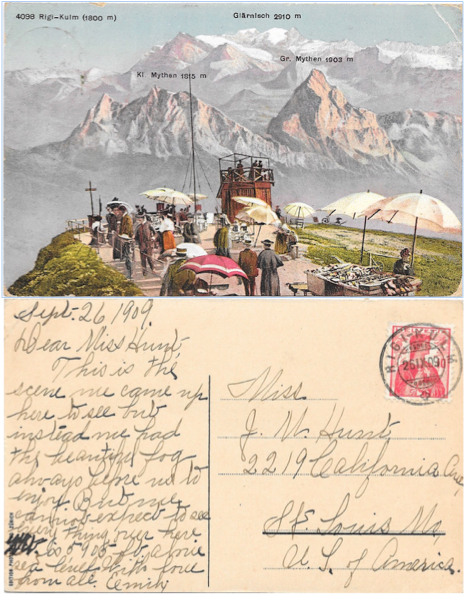 4098 Rigi-Kulm (1800 m)
Glärnisch 2910 m
Gr. Mythen 1903 m
Kl. Mythen 1815 m
Sept. 26 1909
Dear Miss Hunt
This is the
scene we came up
here to see but
instead we had
the beautiful fog
always before us to
enjoy. But we
cannot expect to see
every thing over here.
5905 ft. above
sea level. With love
from all. Emily
RIGI-KULM
26.IX.09
Miss
J. M. Hunt
2219 California Ave
St. Louis Mo
U. S. of America.